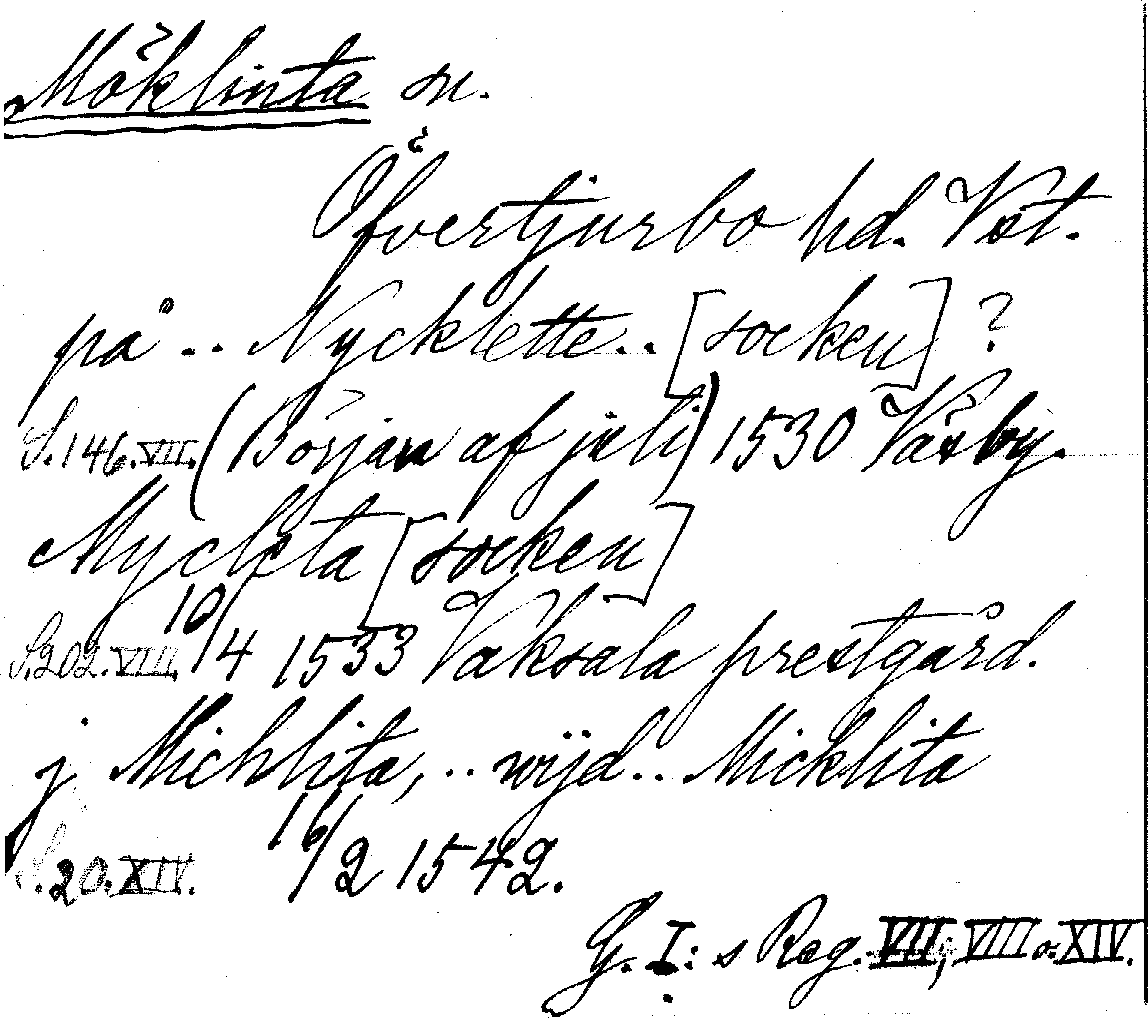 Möklinta sn.
Öfvertjurbo hd. Vst.
på .. Nycklette .. [socken] ?
S. 146. VII. (Början af juli) 1530 Väsby.
Myclita [socken]
S. 202. VIII. 10/4 1533 Vaksala prestgård.
j Michlita, .. wijd .. Micklita
S. 20. XIV. 16/2 1542.
G. I: s Reg. VII, VIII o. XIV.